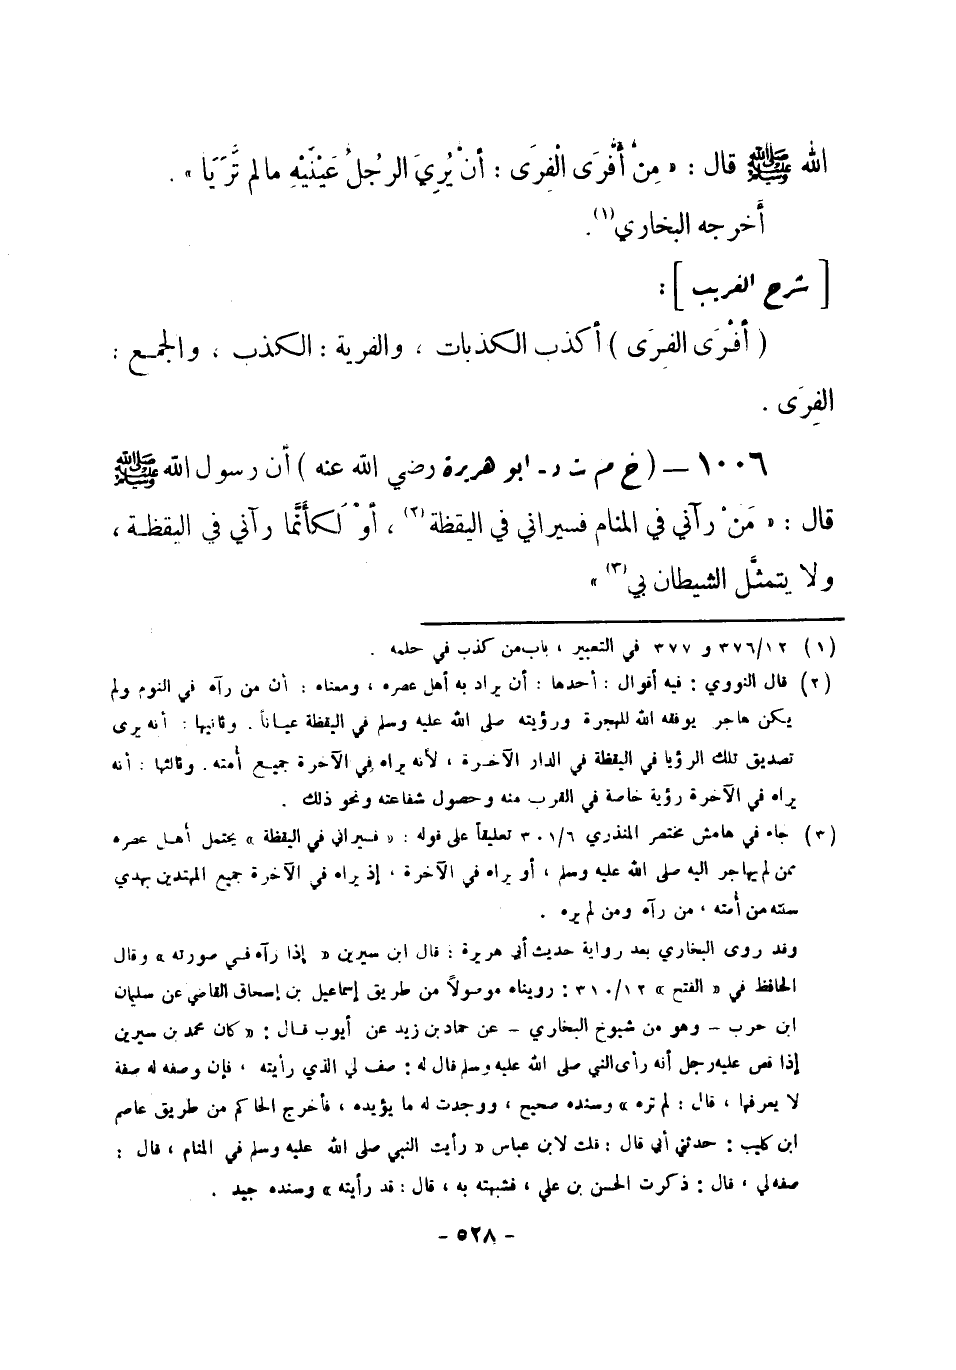 الله ﷺ قال : « مِنْ أَفْرَى الْفِرَى : أنْ يُرِيَ الرجُلُ عَيْنَيْهِ مالم تَرَيَا » .
أخرجه البخاري(١).
[ شرح الغريب ] :
( أفْرَى الفِرَى ) أكذب الكذبات ، والفرية : الكذب ، والجمع :
الفِرَى .
١٠٠٦ – ( خ م ت د - ابو هريرة رضي الله عنه ) أن رسول الله ﷺ
قال : « مَنْ رآني في المنام فسيراني في اليقظة(٢) ، أوْ لَكأنَّما رآني في اليقظة ،
ولا يتمثَّل الشيطان بي(٣) »
(١) ٣٧٦/١٢ و ٣٧٧ في التعبير ، باب من كذب في حلمه .
(٢) قال النووي : فيه أقوال : أحدها : أن يراد به أهل عصره ، ومعناه : أن من رآه في النوم ولم
يكن هاجر يوفقه الله للهجرة ورؤيته صلى الله عليه وسلم في اليقظة عياناً . وثانيها : أنه يرى
تصديق تلك الرؤيا في اليقظة في الدار الآخرة ، لأنه يراه في الآخرة جميع أمته . وثالثها : أنه
يراه في الآخرة رؤية خاصة في القرب منه وحصول شفاعته ونحو ذلك .
(٣) جاء في هامش مختصر المنذري ٣٠١/٦ تعليقاً على قوله : « فسيراني في اليقظة » يحتمل أهل عصره
ممن لم يهاجر اليه صلى الله عليه وسلم ، أو يراه في الآخرة ، إذ يراه في الآخرة جميع المهتدين بهدي
سنته من أمته ، من رآه ومن لم يره .
وقد روى البخاري بعد رواية حديث أبي هريرة : قال ابن سيرين « إذا رآه في صورته » وقال
الحافظ في « الفتح » ٣١٠/١٢ : رويناه موصولاً من طريق إسماعيل بن إسحاق القاضي عن سليمان
ابن حرب – وهو من شيوخ البخاري – عن حماد بن زيد عن أيوب قال : « كان محمد بن سيرين
إذا قص عليه رجل أنه رأى النبي صلى الله عليه وسلم قال له : صف لي الذي رأيته ، فإن وصفه له صفة
لا يعرفها ، قال : لم تره » وسنده صحيح ، ووجدت له ما يؤيده ، فأخرج الحاكم من طريق عاصم
ابن كليب : حدثني أبي قال : قلت لابن عباس « رأيت النبي صلى الله عليه وسلم في المنام ، قال :
صفه لي ، قال : ذكرت الحسن بن علي ، فشبهته به ، قال : قد رأيته » وسنده جيد .
- ٥٢٨ -